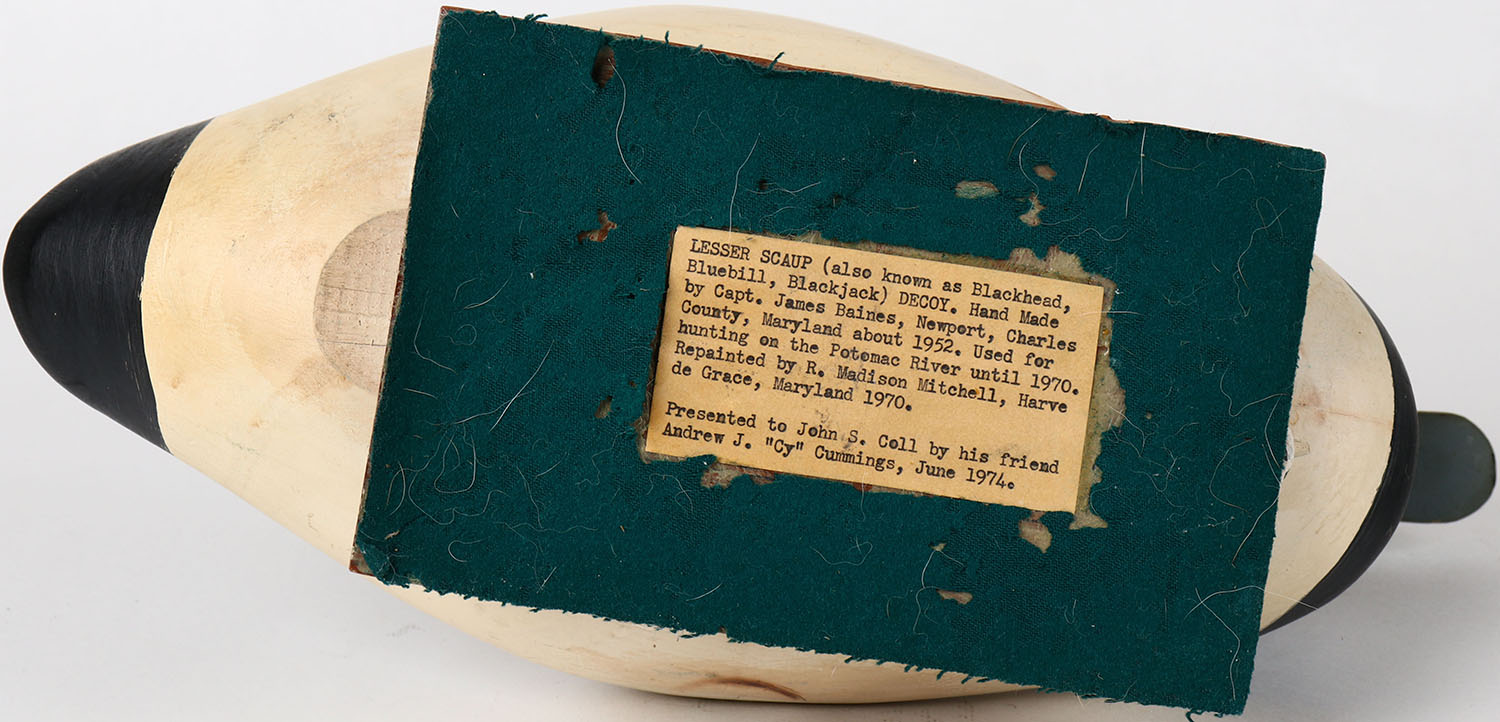 LESSER SCAUP (also known as Blackhead,
Bluebill, Blackjack) DECOY. Hand Made
by Capt. James Baines, Newport, Charles
County, Maryland about 1952. Used for
hunting on the Potomac River until 1970.
Repainted by R. Madison Mitchell, Harve
de Grace, Maryland 1970.
Presented to John S. Coll by his friend
Andrew J. "Cy" Cummings, June 1974.